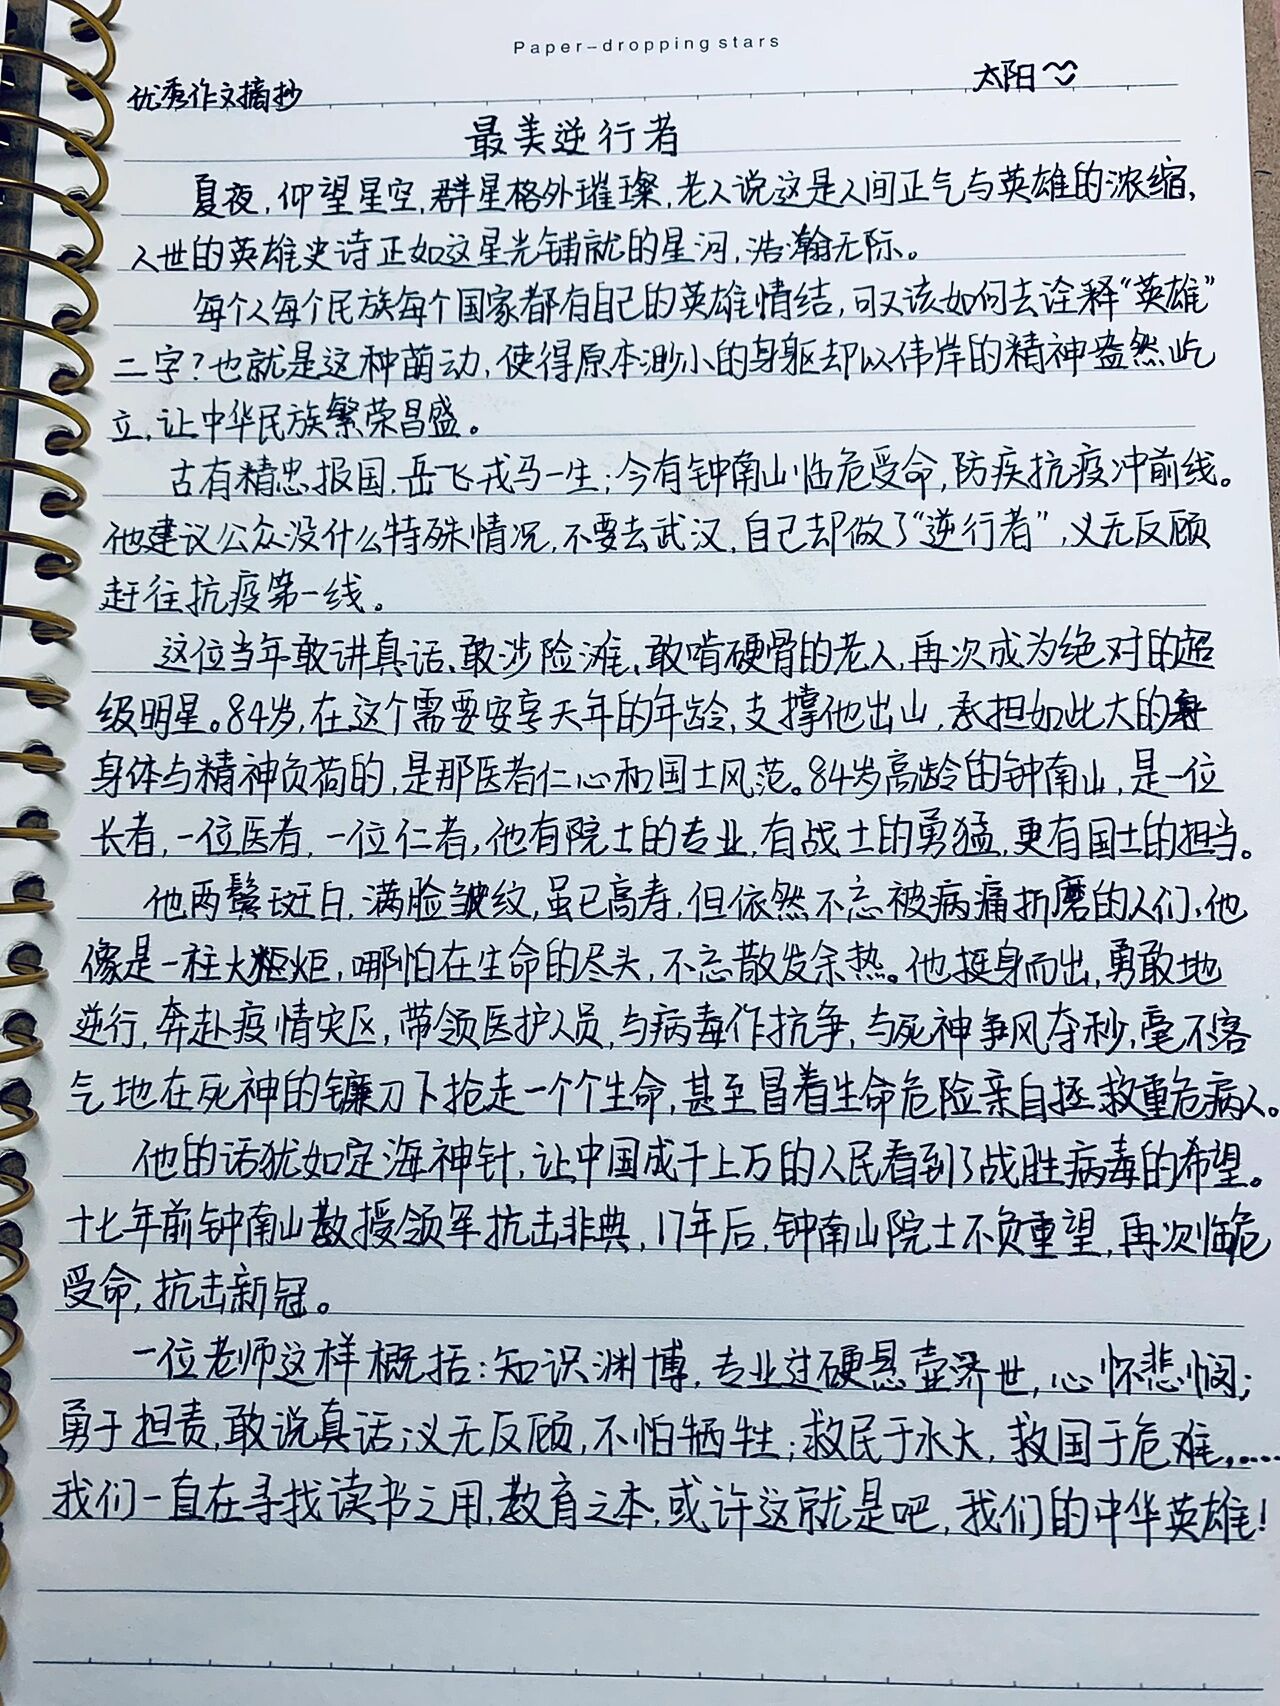 Paper-dropping stars
优秀作文摘抄 太阳
最美逆行者
夏夜,仰望星空,群星格外璀璨,老人说这是人间正气与英雄的浓缩,
入世的英雄史诗正如这星光铺就的星河,浩瀚无际。
每个人每个民族每个国家都有自己的英雄情结,可又该如何去诠释“英雄”
二字?也就是这种萌动,使得原本渺小的身躯却以伟岸的精神盎然屹
立,让中华民族繁荣昌盛。
古有精忠报国,岳飞戎马一生;今有钟南山临危受命,防疾抗疫冲前线。
他建议公众没什么特殊情况,不要去武汉,自己却做了“逆行者”,义无反顾
赶往抗疫第一线。
这位当年敢讲真话、敢涉险滩、敢啃硬骨的老人,再次成为绝对的超
级明星。84岁,在这个需要安享天年的年龄,支撑他出山,承担如此大的
身体与精神负荷的,是那医者仁心和国士风范。84岁高龄的钟南山,是一位
长者,一位医者,一位仁者,他有院士的专业,有战士的勇猛,更有国士的担当。
他两鬓斑白,满脸皱纹,虽已高寿,但依然不忘被病痛折磨的人们,他
像是一柱火炬,哪怕在生命的尽头,不忘散发余热。他挺身而出,勇敢地
逆行,奔赴疫情灾区,带领医护人员,与病毒作抗争,与死神争风夺秒,毫不客
气地在死神的镰刀下抢走一个个生命,甚至冒着生命危险亲自拯救重危病人。
他的话犹如定海神针,让中国成千上万的人民看到了战胜病毒的希望。
十七年前钟南山教授领军抗击非典,17年后,钟南山院士不负重望,再次临危
受命,抗击新冠。
一位老师这样概括:知识渊博,专业过硬悬壶济世,心怀悲悯;
勇于担责,敢说真话;义无反顾,不怕牺牲;救民于水火,救国于危难,……
我们一直在寻找读书之用,教育之本,或许这就是吧,我们的中华英雄!